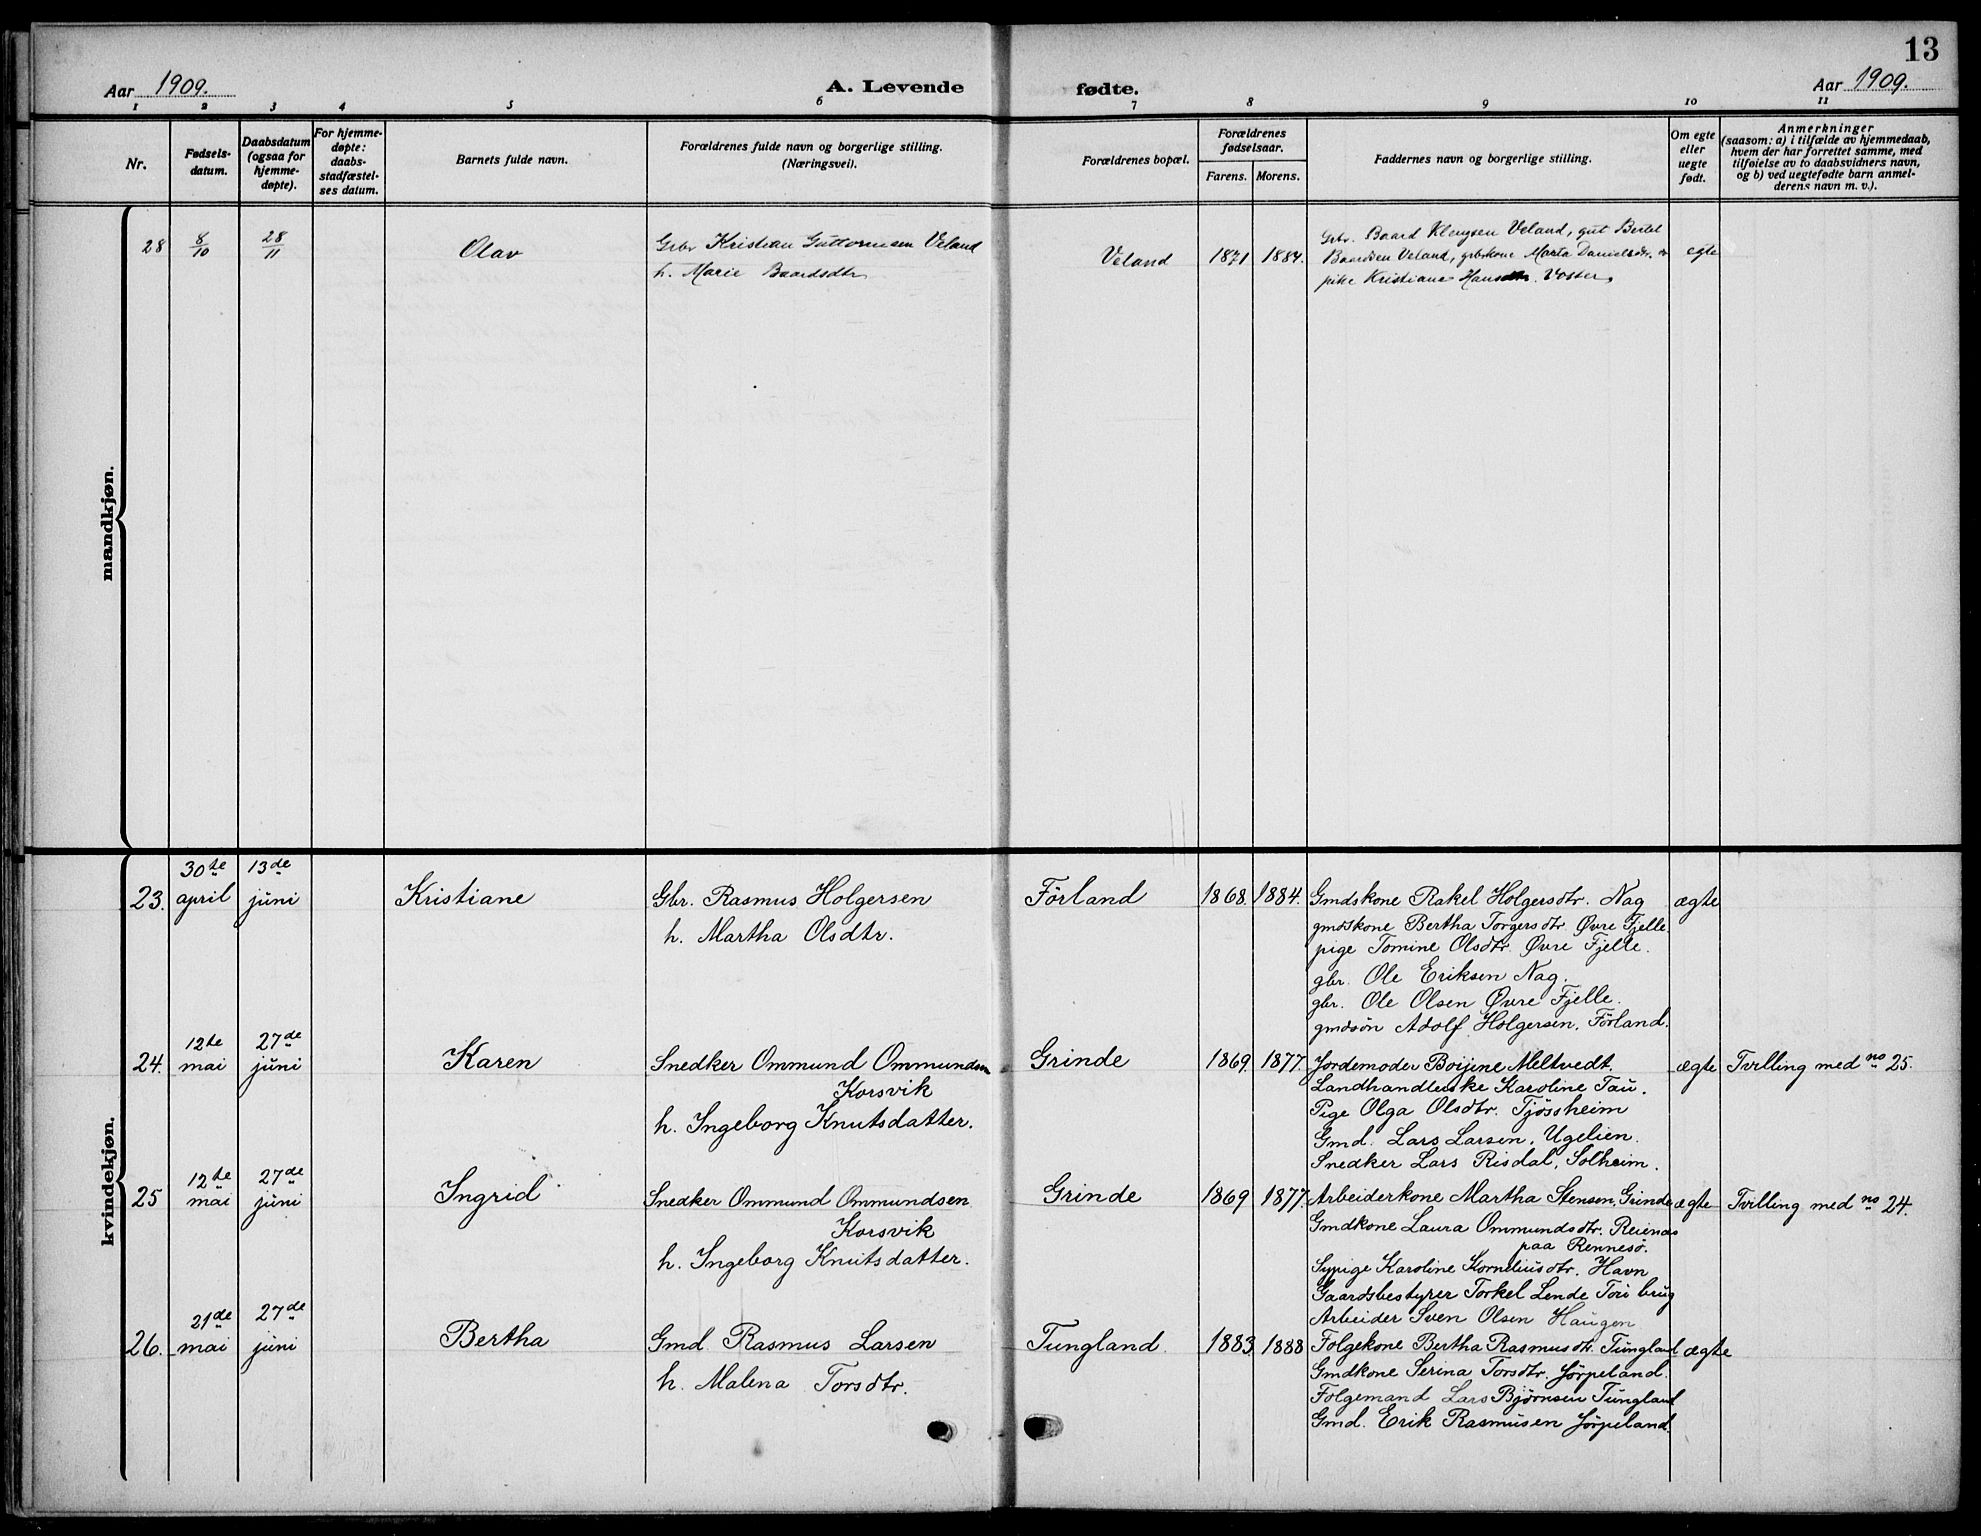 13
Aar 1909. A. Levende fødte. Aar 1909.
1 2 3 4 5 6 7 8 9 10 11
Nr.
Fødsels-
datum.
Daabsdatum
(ogsaa for
hjemme-
døpte).
For hjemme-
døpte:
daabs-
stadfæstel-
ses datum.
Barnets fulde navn.
Forældrenes fulde navn og borgerlige stilling.
(Næringsvei).
Forældrenes bopæl.
Forældrenes
fødselsaar.
Farens. Morens.
Faddernes navn og borgerlige stilling.
Om egte
eller
uegte
født.
Anmerkninger
(saasom: a) i tilfælde av hjemmedaab,
hvem der har forrettet samme, med
tilføielse av to daabsvidners navn,
og b) ved uegtefødte barn anmel-
derens navn m. v.).
mandkjøn.
28 8/10 28/11 Olav
Grbr Kristian Guttormsen Veland
h. Marie Baardsdtr
Veland 1871 1884.
Grbr. Baard Klengsen Veland, gut Bertel
Baardsen Veland, grbrkone Marta Danielsdtr. o
pike Kristiane Hansdtr. Voster,
egte
kvindekjøn.
23. 30te april 13de juni Kristiane
Gbr. Rasmus Holgersen
h. Martha Olsdtr.
Förland 1868. 1884.
Gmdskone Rakel Holgersdtr. Nag
gmdskone Bertha Torgersdtr. Øvre Fjelle.
pige Tomine Olsdtr. Øvre Fjelle.
gbr. Ole Eriksen Nag.
gbr. Ole Olsen Øvre Fjelle.
gmdsön Adolf Holgersen, Förland.
ægte
24. 12te mai 27de juni Karen
Snedker Ommund Ommundsen
Korsvik
h. Ingeborg Knutsdatter.
Grinde 1869. 1877.
Jordemoder Meltvedt.
Karoline Tau.
Pige Olga Olsdtr. Tjössheim
Gmd. Lars Larsen, Ugelien.
Snedker Lars Risdal, Solheim.
ægte
Tvilling med no 25.
25 12te mai 27de juni Ingrid
Snedker Ommund Ommundsen
Korsvik
h. Ingeborg Knutsdatter.
Grinde 1869 1877.
Arbeiderkone Martha Stensen, Grinde
Gmdkone Laura Ommundsdtr. Reienes
paa Rennesö.
Sypige Karoline Korneliusdtr. Havn
Gaardsbestyrer Torkel Lende Tou brug
Arbeider Sven Olsen Haugen
ægte
Tvilling med no 24.
26. 21de mai 27de juni Bertha
Gmd Rasmus Larsen
h. Malena Torsdtr.
Tungland. 1883. 1888
Folgekone Bertha Rasmusdtr. Tungland
Gmdkone Serina Torsdtr. Jørpeland.
Folgemand Lars Bjørnsen Tungland
Gmd. Erik Rasmusen Jørpeland.
ægte